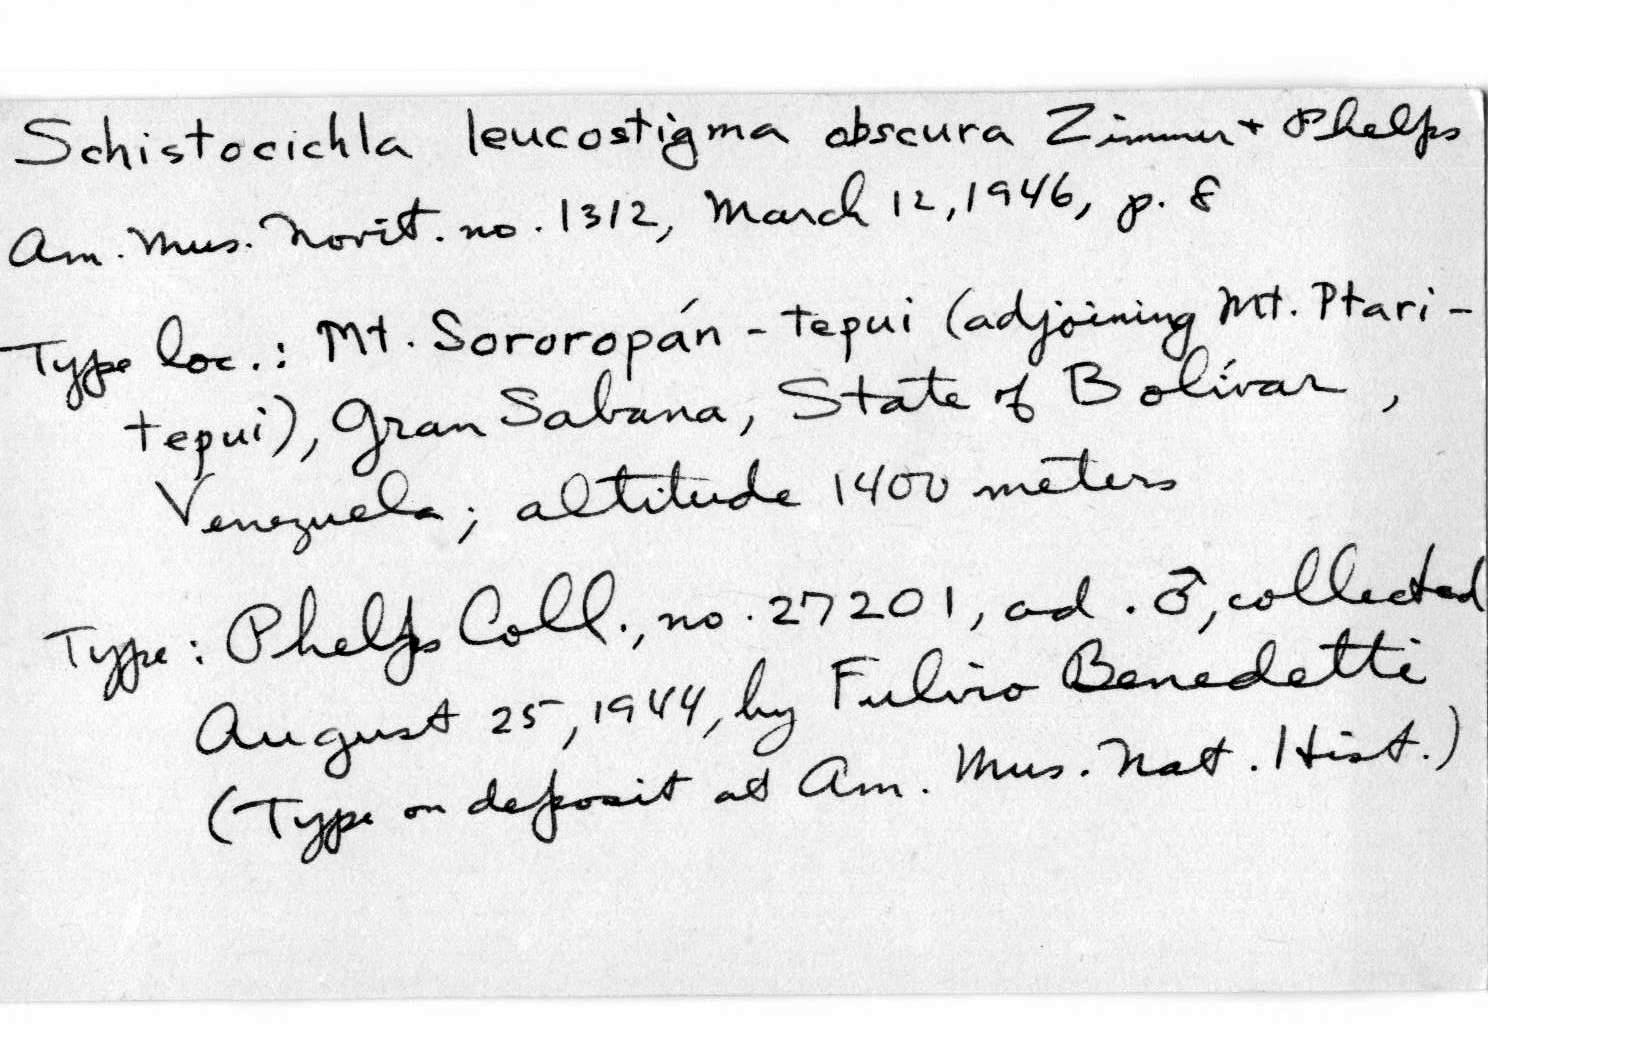 Schistocichla leucostigma obscura Zimmer + Phelps
Am. Mus. Novit. no. 1312, March 12, 1946, p. 8
Type loc.: Mt. Sororopán-tepui (adjoining Mt. Ptari-
tepui), Gran Sabana, State of Bolívar,
Venezuela; altitude 1400 meters
Type: Phelps Coll., no. 27201, ad. ♂, collected
August 25, 1944, by Fulvio Benedetti
(Type on deposit at Am. Mus. Nat. Hist.)